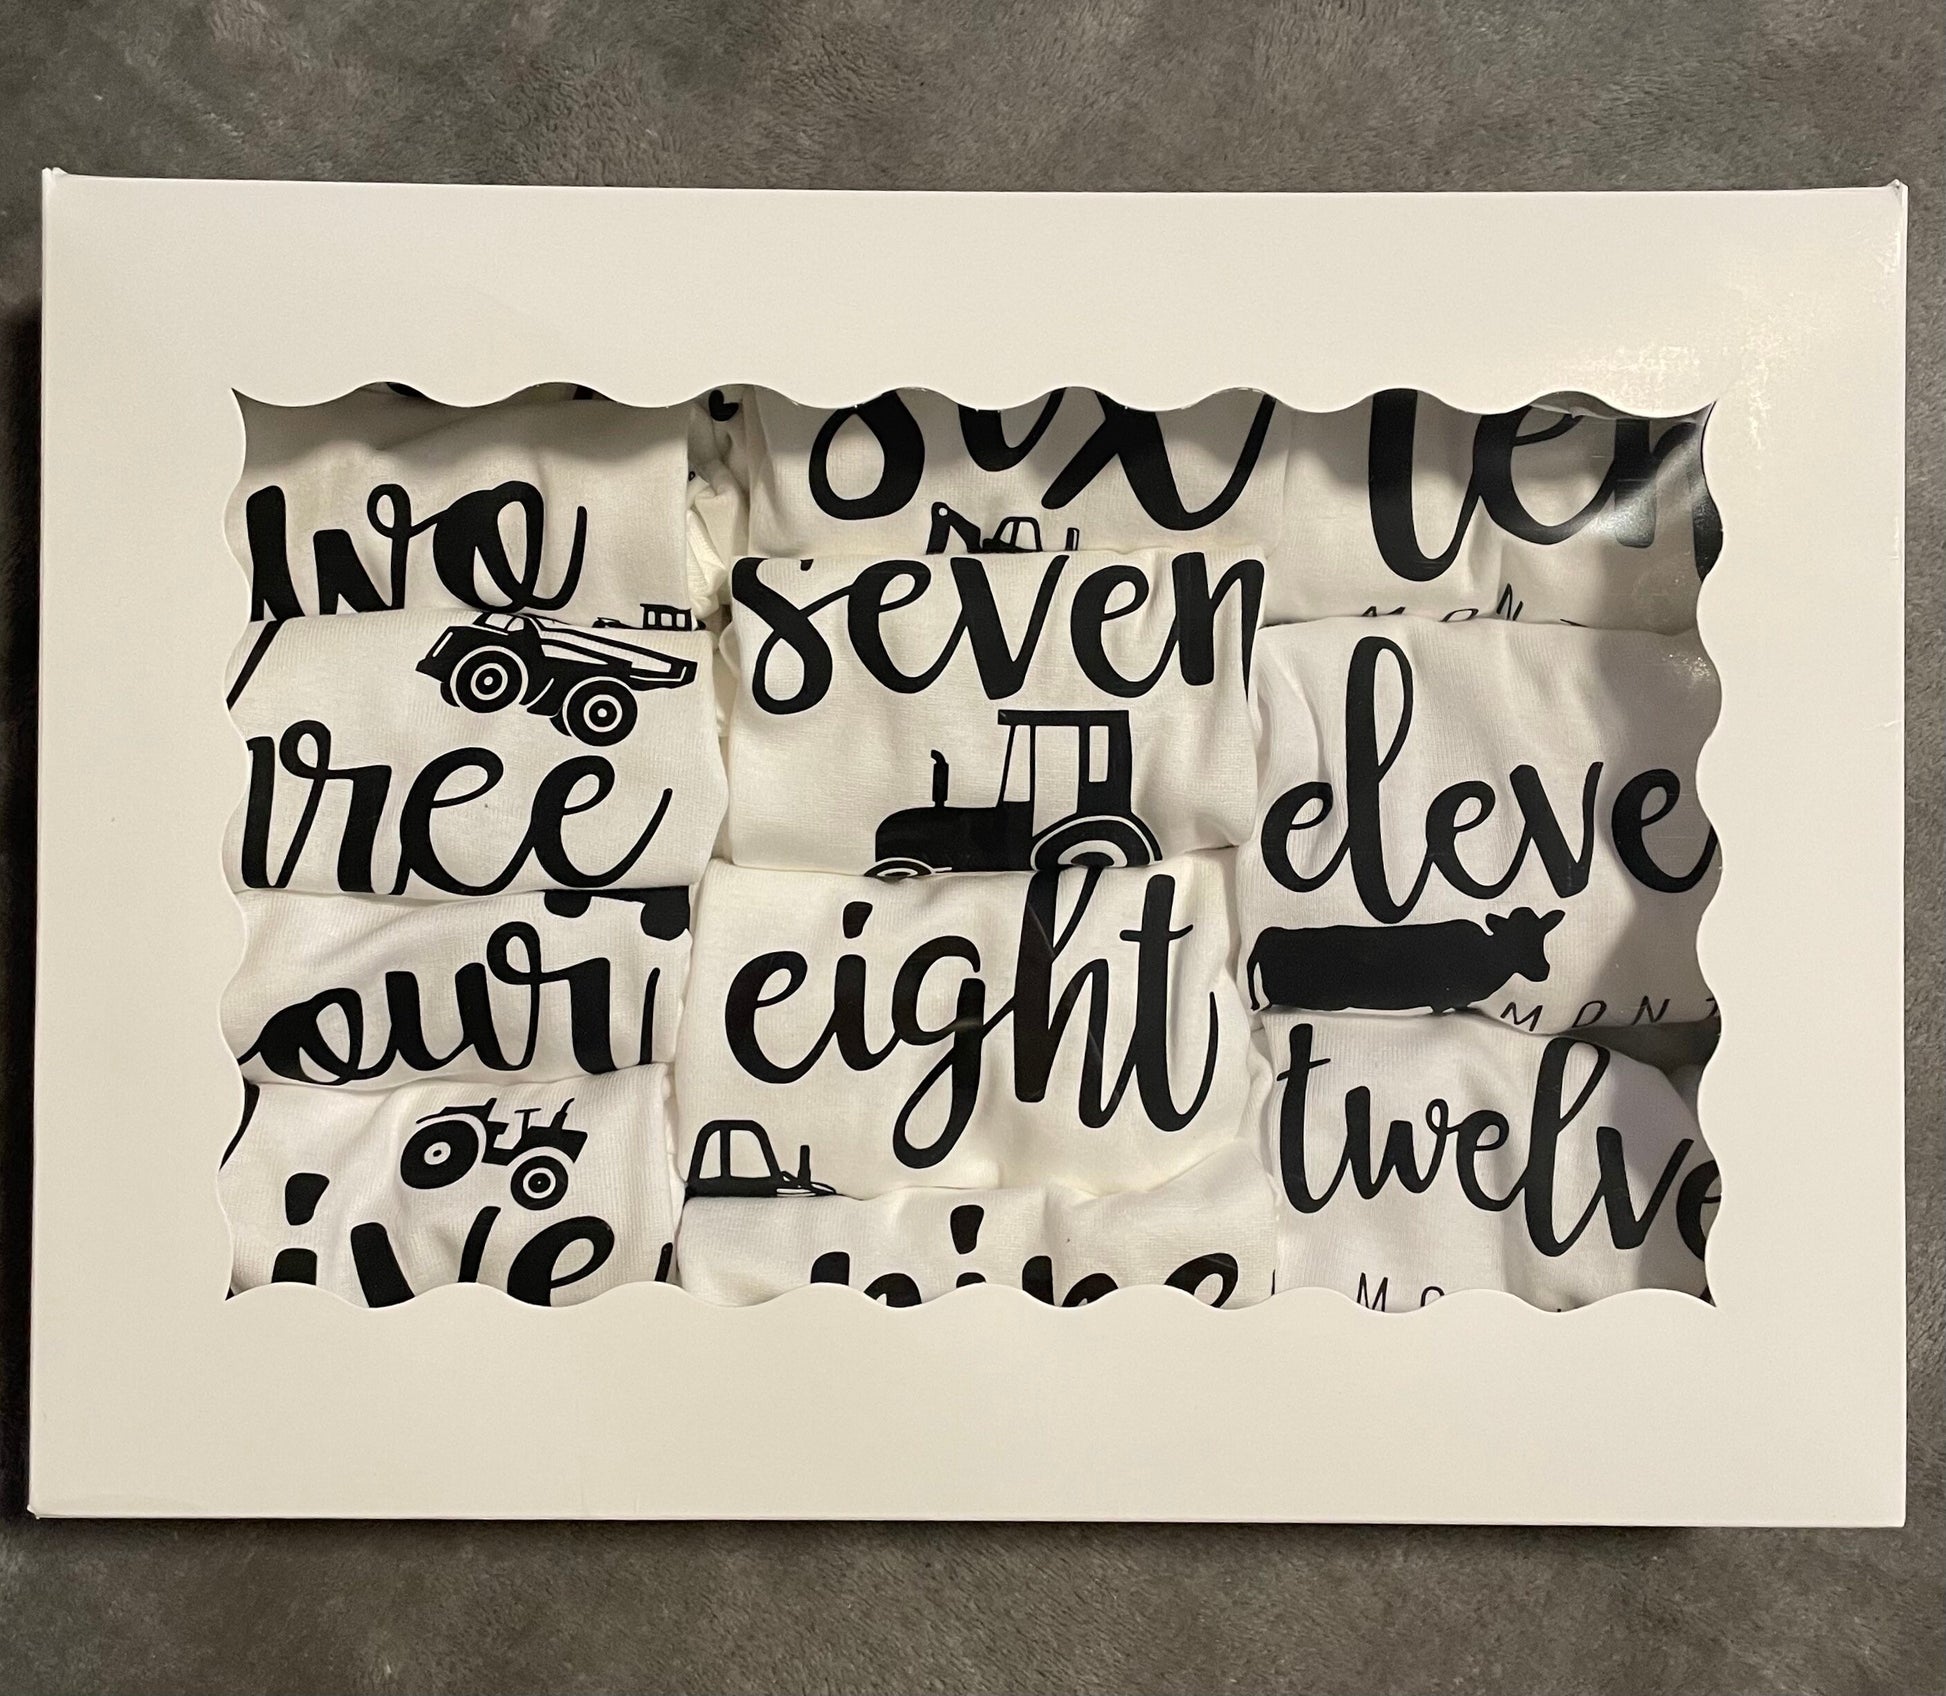 two
three
four
five
six
seven
eight
nine
ten
MONT
eleve
MONT
twelve
MO